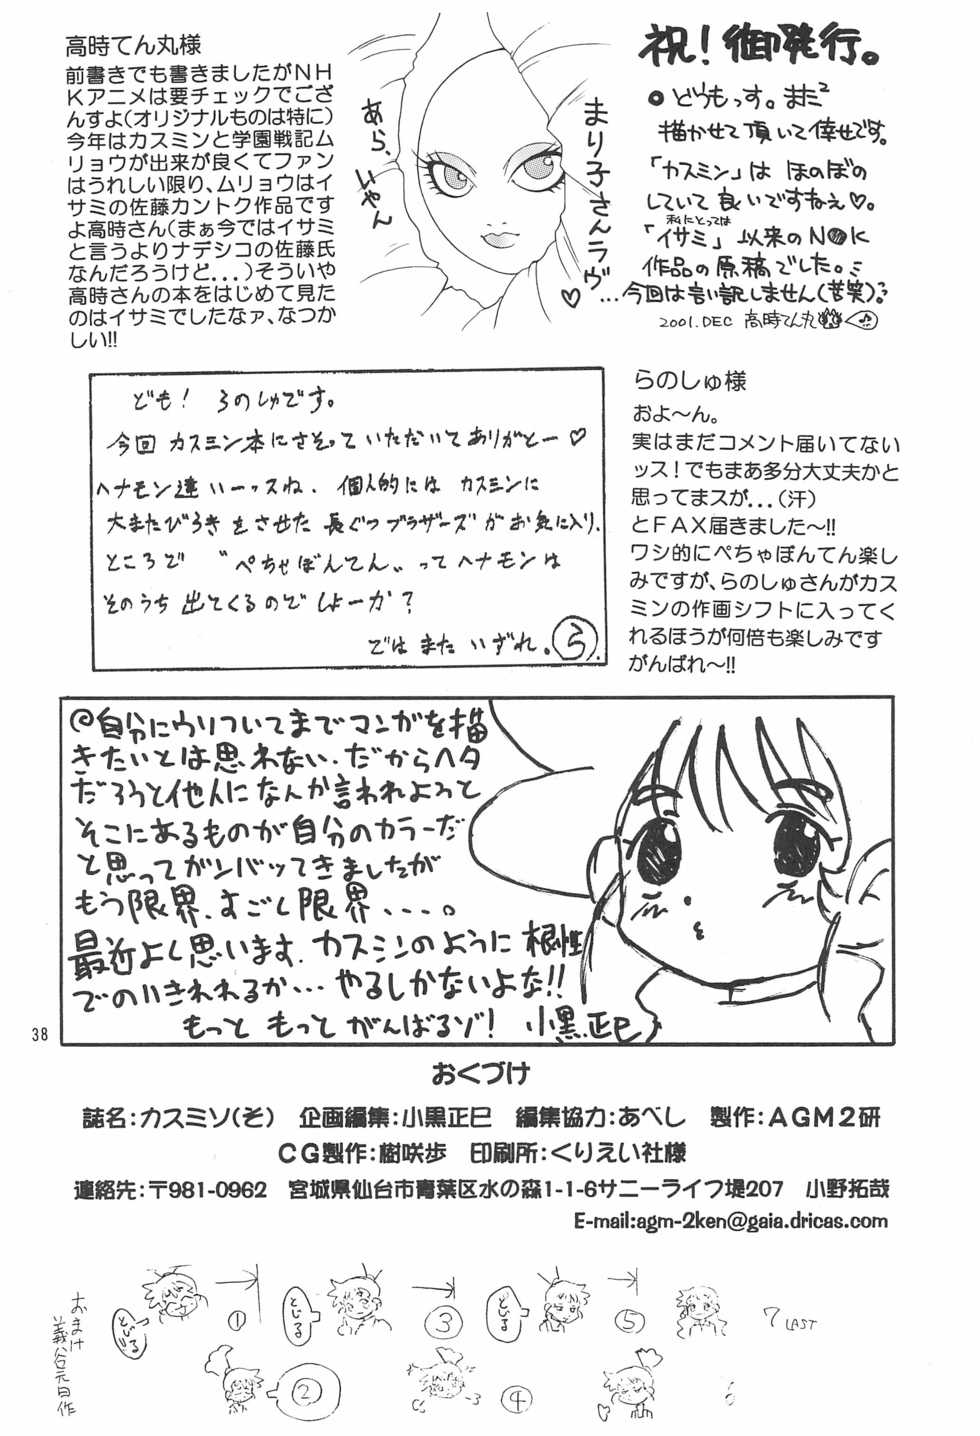 高時てん丸様
前書きでも書きましたがNH
Kアニメは要チェックでござ
んすよ(オリジナルものは特に)
今年はカスミンと学園戦記ム
リョウが出来が良くてファン
はうれしい限り、ムリョウはイ
サミの佐藤カントク作品です
よ高時さん(まぁ今ではイサミ
と言うよりナデシコの佐藤氏
なんだろうけど...)そういや
高時さんの本をはじめて見た
のはイサミでしたなァ、なつか
しい!!
あら、
いやん
まり子さんラヴ♡
祝!御発行。
●どうもっす。また2
描かせて頂いて倖せです。
「カスミン」は ほのぼの
していて 良いですねぇ♡。
私にとっては
「イサミ」以来のN●K
作品の原稿でした。ミ
...今回は言い訳しません(苦笑)?
2001.DEC 高時てん丸
ども! らのしゅです。
今回 カスミン本にさそっていただいてありがとー♡
ヘナモン達 いーッスね、個人的には カスミンに
大またびらき をさせた 長ぐつブラザーズ が お気に入り、
ところで “ぺちゃぽんてん„ って ヘナモンは
そのうち 出てくるのでしょーか?
では また いずれ。ら
らのしゅ様
およ〜ん。
実はまだコメント届いてない
ッス!でもまあ多分大丈夫かと
思ってまスが...(汗)
とFAX届きました〜!!
ワシ的にぺちゃぽんてん楽し
みですが、らのしゅさんがカス
ミンの作画シフトに入ってく
れるほうが何倍も楽しみです
がんばれ〜!!
自分にウソついてまでマンガを描
きたいとは思わない.だからヘタ
だろうと他人になんか言われようと
そこにあるものが自分のカラーだ
と思ってガンバッてきましたが
もう限界、すごし限界、、、。
最近よし思います.カスミンのように根性
でのりきれるか...やるしかないよな!!
もっと もっと がんばるゾ! 小黒正巳
38
おくづけ
誌名:カスミソ(そ) 企画編集:小黒正巳 編集協力:あべし 製作:AGM2研
CG製作:樹咲歩 印刷所:くりえい社様
連絡先:〒981-0962 宮城県仙台市青葉区水の森1-1-6サニーライフ堤207 小野拓哉
E-mail:agm-2ken@gaia.dricas.com
おまけ
義谷元日作
①
とじる
③
とじる
⑤
7 LAST
②
④
6